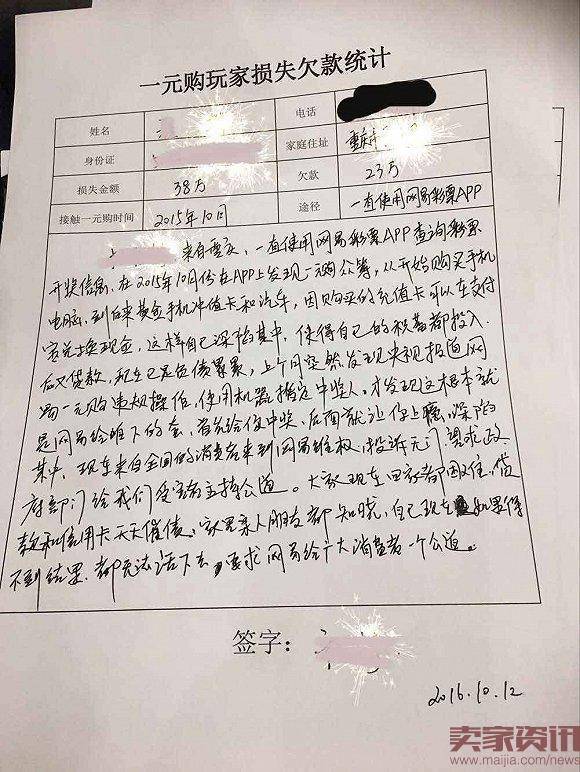 一元购玩家损失欠款统计
姓名 电话
身份证 家庭住址 重庆
损失金额 38万 欠款 23万
接触一元购时间 2015年10月 途径 一直使用网易彩票APP
来自重庆,一直使用网易彩票APP查询彩票
开奖信息,在2015年10月份在APP上发现一元众筹,从开始购买手机
电脑,到后来黄金手机冲值卡和汽车,因购买的充值卡可以在支付
宝兑换现金,这样自己深陷其中,使得自己的积蓄都投入
后又贷款,现在已是负债累累,上个月突然发现央视报道网
易一元购违规操作,使用机器指定中奖人,才发现这根本就
是网易给咱下的套,首先给你中奖,后面就让你上瘾,深陷
其中,现在来自全国的消费者来到网易维权,投诉无门,要求政
府部门给我们受害者主持公道。大家现在回家都困难,借
款和信用卡天天催债,家里亲人朋友都知晓,自己现在如果得
不到结果,都无法活下去,要求网易给广大消费者一个公道。
签字:
2016.10.12
卖家资讯
www.maijia.com/news